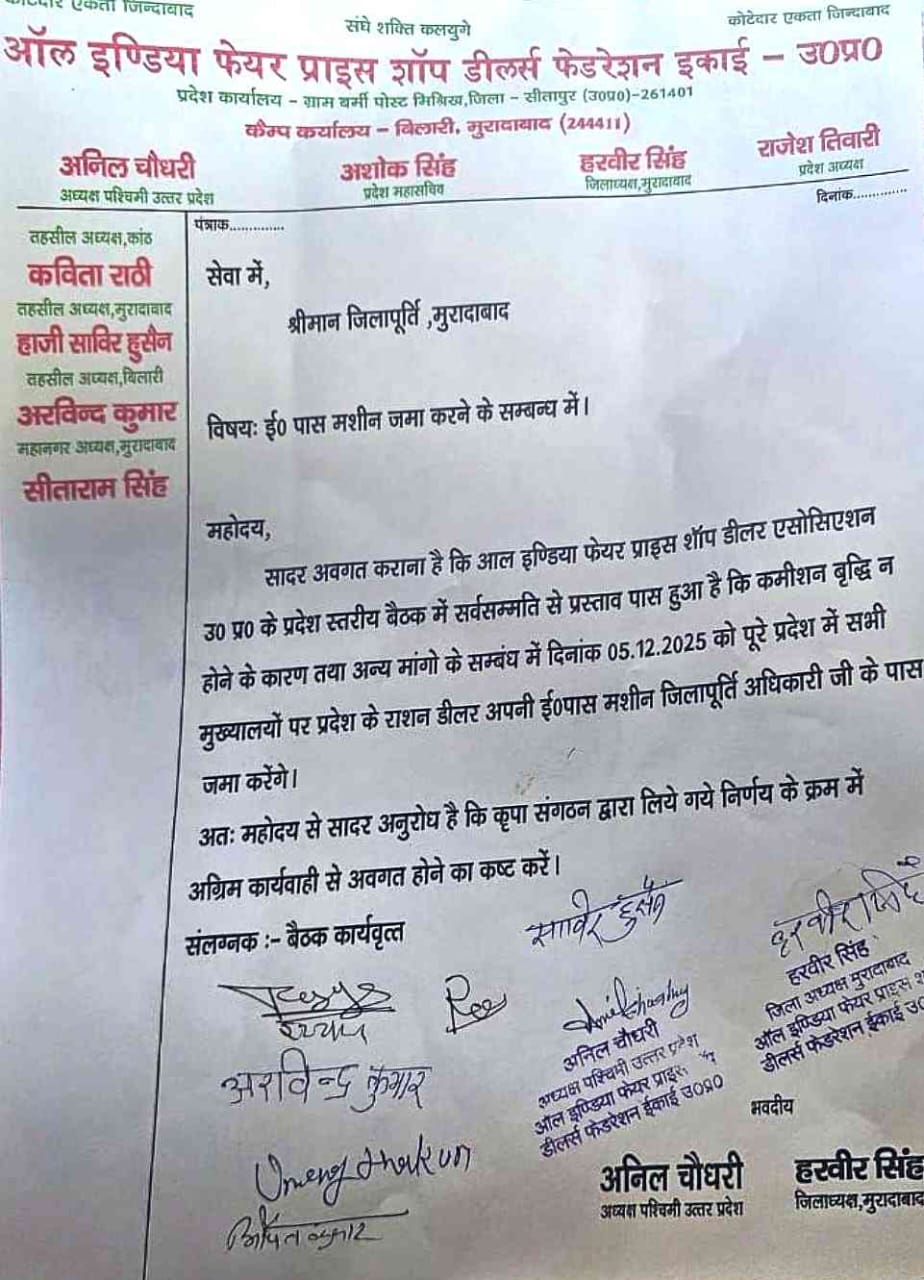 कोटेदार एकता जिन्दाबाद
संघे शक्ति कलयुगे
कोटेदार एकता जिन्दाबाद
ऑल इण्डिया फेयर प्राइस शॉप डीलर्स फेडरेशन इकाई – उ0प्र0
प्रदेश कार्यालय – ग्राम बर्मी पोस्ट मिश्रिख,जिला – सीतापुर (उ0प्र0)-261401
कैम्प कर्यालय – बिलारी, मुरादाबाद (244411)
अनिल चौधरी
अध्यक्ष पश्चिमी उत्तर प्रदेश
अशोक सिंह
प्रदेश महासचिव
हरवीर सिंह
जिलाध्यक्ष,मुरादाबाद
राजेश तिवारी
प्रदेश अध्यक्ष
पंत्राक..............
दिनांक..............
तहसील अध्यक्ष,कांठ
कविता राठी
तहसील अध्यक्ष,मुरादाबाद
हाजी साविर हुसैन
तहसील अध्यक्ष,बिलारी
अरविन्द कुमार
महानगर अध्यक्ष,मुरादाबाद
सीताराम सिंह
सेवा में,
श्रीमान जिलापूर्ति ,मुरादाबाद
विषयः ई0 पास मशीन जमा करने के सम्बन्ध में।
महोदय,
सादर अवगत कराना है कि आल इण्डिया फेयर प्राइस शॉप डीलर एसोसिएशन
उ0 प्र0 के प्रदेश स्तरीय बैठक में सर्वसम्मति से प्रस्ताव पास हुआ है कि कमीशन बृद्धि न
होने के कारण तथा अन्य मांगो के सम्बंध में दिनांक 05.12.2025 को पूरे प्रदेश में सभी
मुख्यालयों पर प्रदेश के राशन डीलर अपनी ई0पास मशीन जिलापूर्ति अधिकारी जी के पास
जमा करेंगे।
अतः महोदय से सादर अनुरोध है कि कृपा संगठन द्वारा लिये गये निर्णय के क्रम में
अग्रिम कार्यवाही से अवगत होने का कष्ट करें।
संलग्नक :- बैठक कार्यवृत्त
साविर हुसैन
हरवीर सिंह
हरवीर सिंह
जिला अध्यक्ष मुरादाबाद
ऑल इण्डिया फेयर प्राइस
डीलर्स फेडरेशन ईकाई
अनिल चौधरी
अध्यक्ष पश्चिमी उत्तर प्रदेश
ऑल इण्डिया फेयर प्राइस
डीलर्स फेडरेशन ईकाई उ0प्र0
अरविन्द कुमार
भवदीय
अनिल चौधरी
अध्यक्ष पश्चिमी उत्तर प्रदेश
हरवीर सिंह
जिलाध्यक्ष,मुरादाबाद